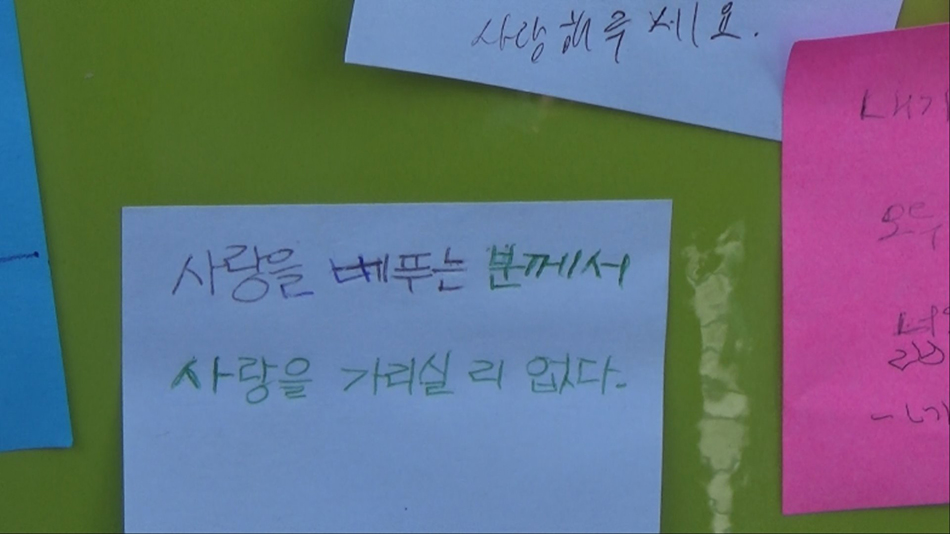 사랑해주세요.
사랑을 베푸는 분께서
사랑을 가리실 리 없다.
내가
모두